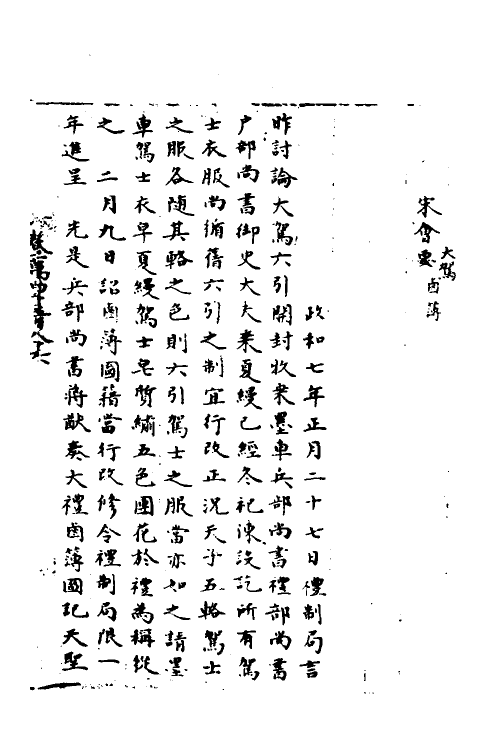 宋會要
大駕
鹵簿
政和七年正月二十七日禮制局言
昨討論大駕六引開封牧乗墨車兵部尚書禮部尚書
户部尚書御史大夫乗夏縵已經冬祀陳設訖所有駕
士衣服尚循舊六引之制宜行改正況天子五輅駕士
之服各随其輅之色則六引駕士之服當亦如之請墨
車駕士衣皁夏縵駕士皂質繡五色團花於禮為稱從
之 二月九日詔鹵薄圖籍當行改修令禮制局限一
年進呈 先是兵部尚書蔣猷奏大禮鹵簿圖記天聖